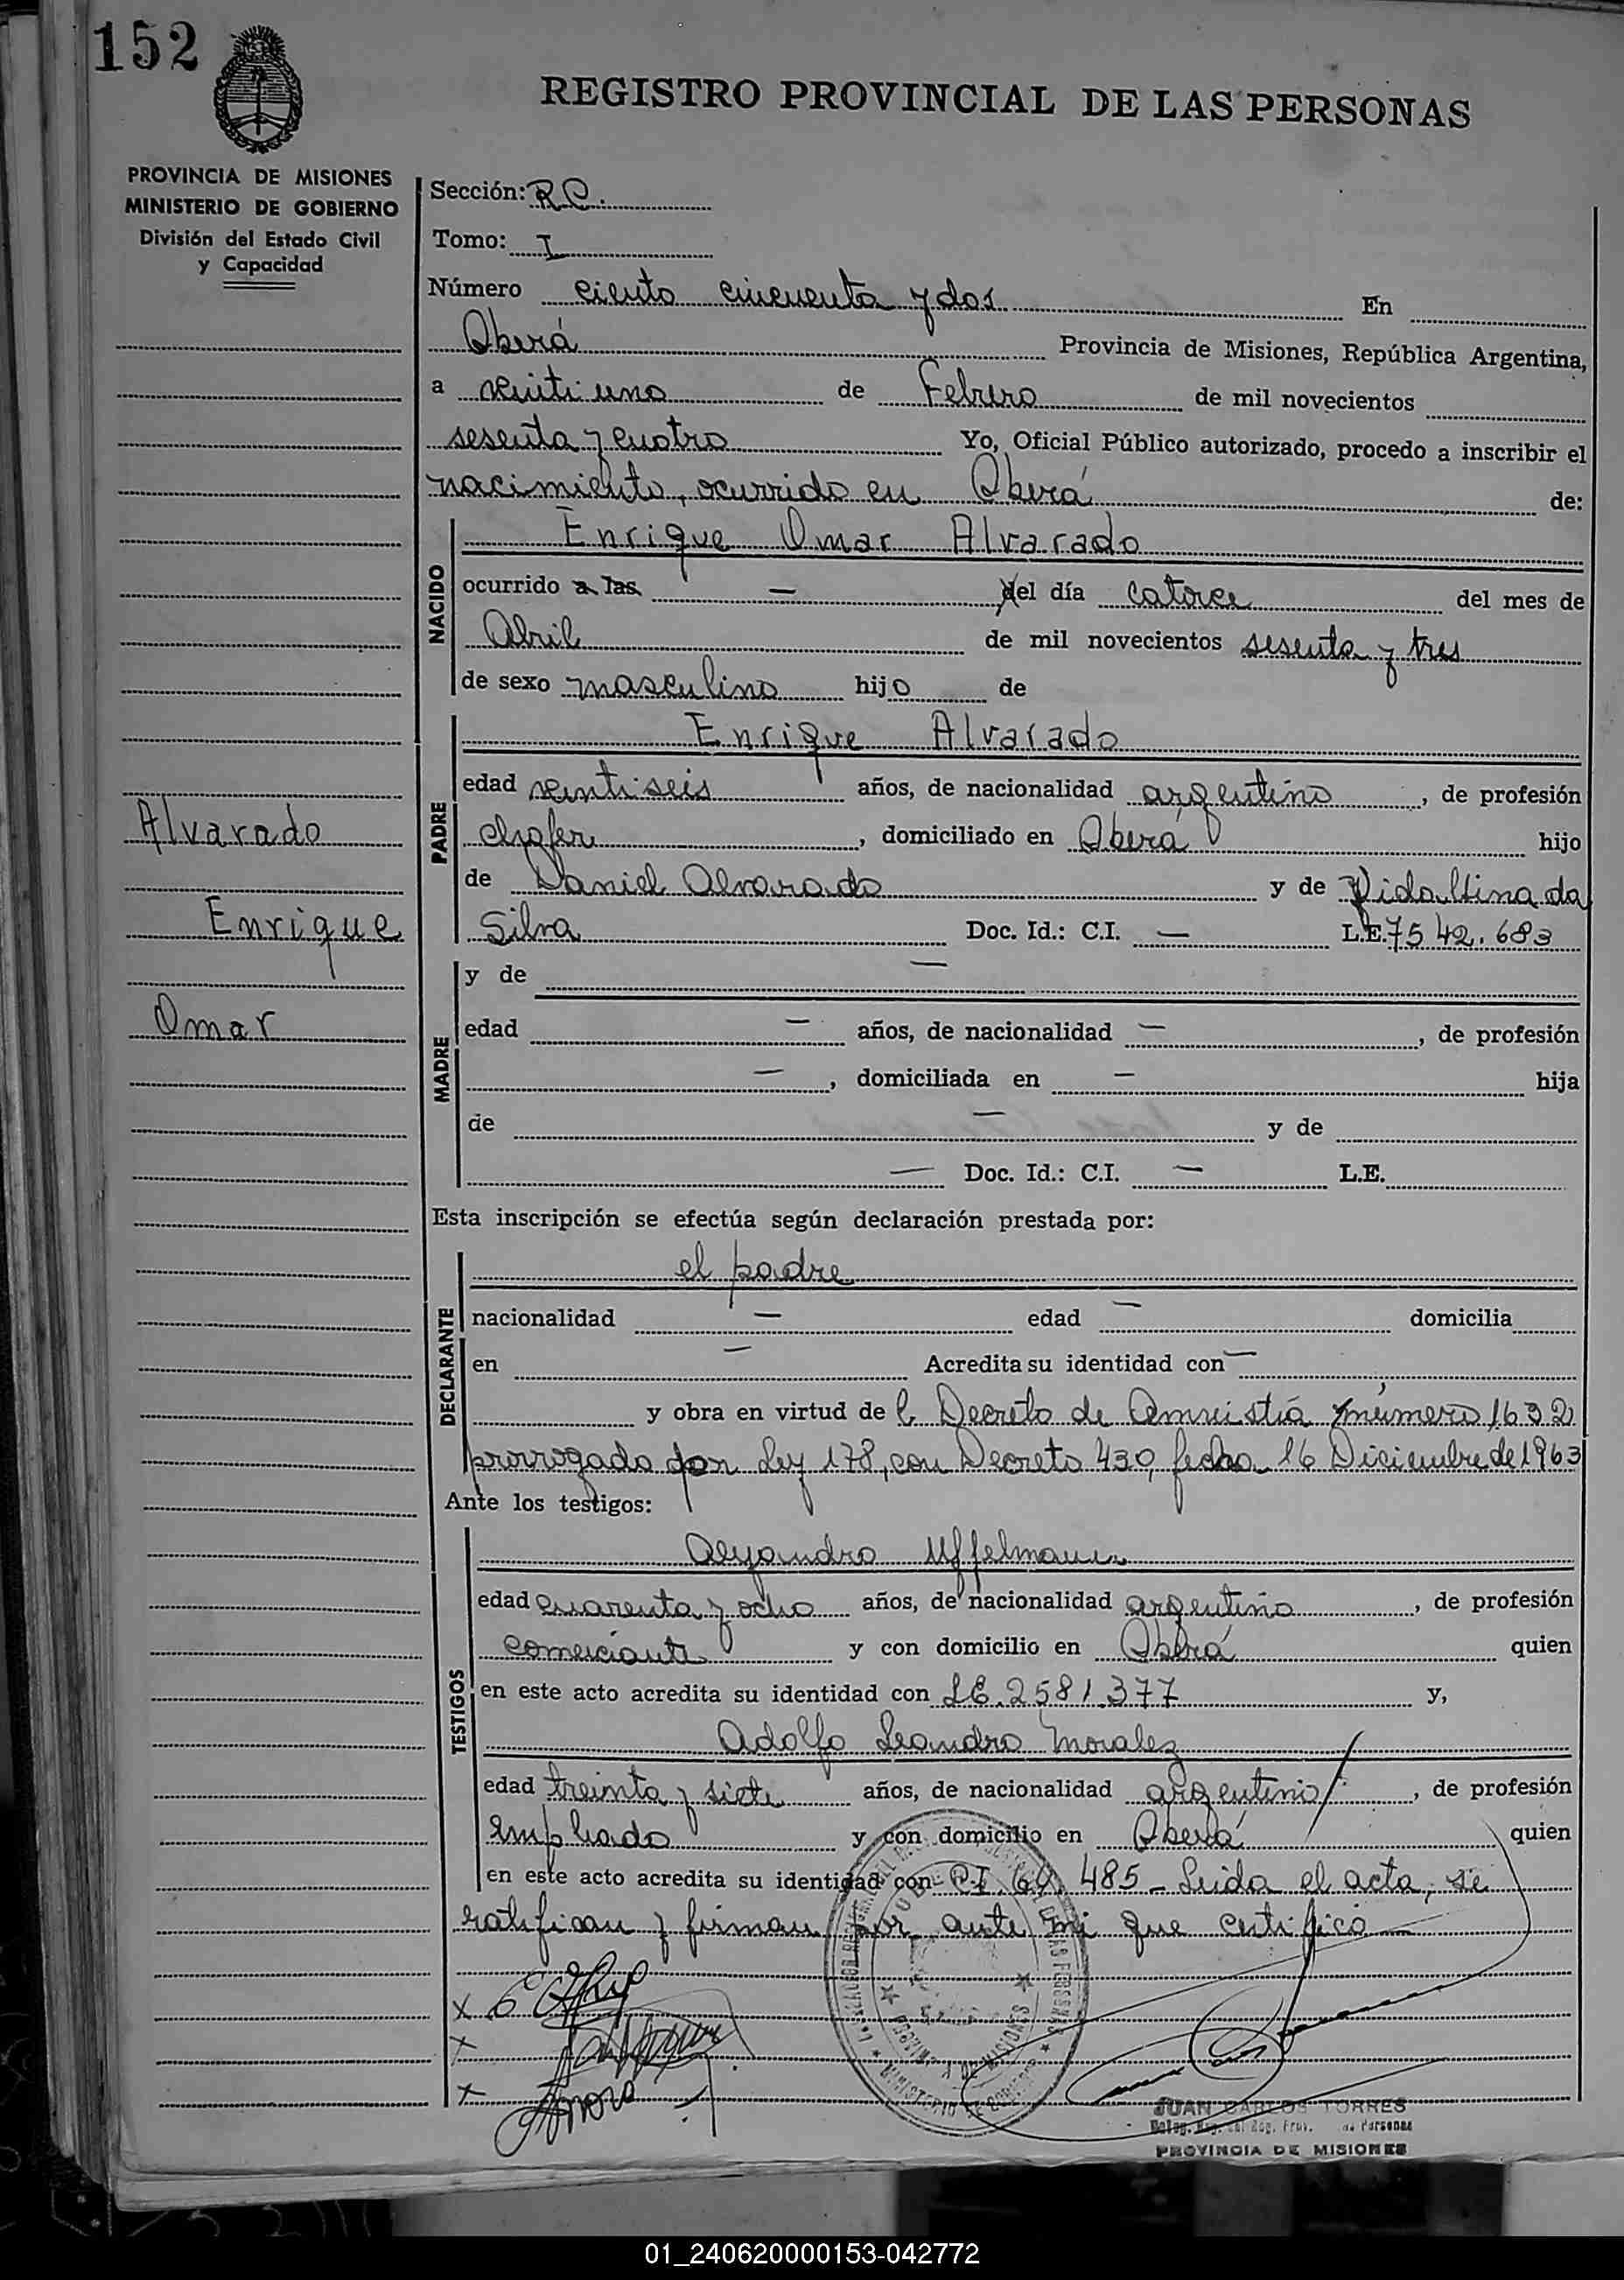 152
REGISTRO PROVINCIAL DE LAS PERSONAS
PROVINCIA DE MISIONES
MINISTERIO DE GOBIERNO
División del Estado Civil
y Capacidad
Sección: R.C.
Tomo: I
Número ciento cincuenta y dos En
Oberá Provincia de Misiones, República Argentina,
a veinti uno de Febrero de mil novecientos
sesenta y cuatro Yo, Oficial Público autorizado, procedo a inscribir el
nacimiento, ocurrido en Oberá de:
NACIDO
Enrique Omar Alvarado
ocurrido a las — del día catorce del mes de
Abril de mil novecientos sesenta y tres
de sexo masculino hijo de
PADRE
Enrique Alvarado
edad veintiseis años, de nacionalidad argentino, de profesión
chofer, domiciliado en Oberá hijo
de Daniel Alvarado y de Vidaltina da
Silva Doc. Id.: C.I. — L.E. 7542.683
Alvarado
Enrique
Omar
MADRE
y de —
edad — años, de nacionalidad —, de profesión
—, domiciliada en — hija
de — y de
— Doc. Id.: C.I. — L.E.
Esta inscripción se efectúa según declaración prestada por:
DECLARANTE
el padre
nacionalidad — edad — domicilia
en — Acredita su identidad con —
y obra en virtud de l Decreto de Amnistía número 1632
prorrogado por Ley 178, con Decreto 430, fecha 16 Diciembre de 1963
Ante los testigos:
TESTIGOS
Alejandro Uffelmann
edad cuarenta y ocho años, de nacionalidad argentino, de profesión
comerciante y con domicilio en Oberá quien
en este acto acredita su identidad con LE.2581.377 y,
Adolfo Leandro Morales
edad treinta y siete años, de nacionalidad argentino, de profesión
empleado y con domicilio en Oberá quien
en este acto acredita su identidad con C.I. 69.485 - Leida el acta, se
ratifican y firman por ante mi que certifico
JUAN CARLOS TORRES
PROVINCIA DE MISIONES
01_240620000153-042772